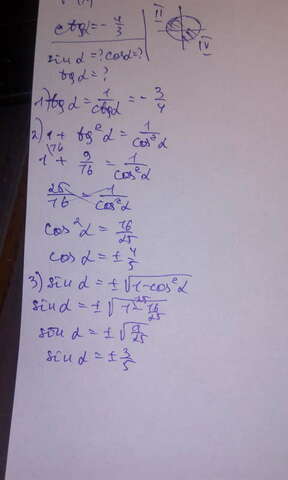 ctgα = - 4/3
II
IV
sin α = ? cos α = ?
tg α = ?
1) tg α = 1/ctgα = - 3/4
2) 1 + tg²α = 1/cos²α
1 + 9/16 = 1/cos²α
25/16 = 1/cos²α
cos²α = 16/25
cos α = ± 4/5
3) sin α = ± √1-cos²α
sin α = ± √1 - 16/25
sin α = ± √9/25
sin α = ± 3/5